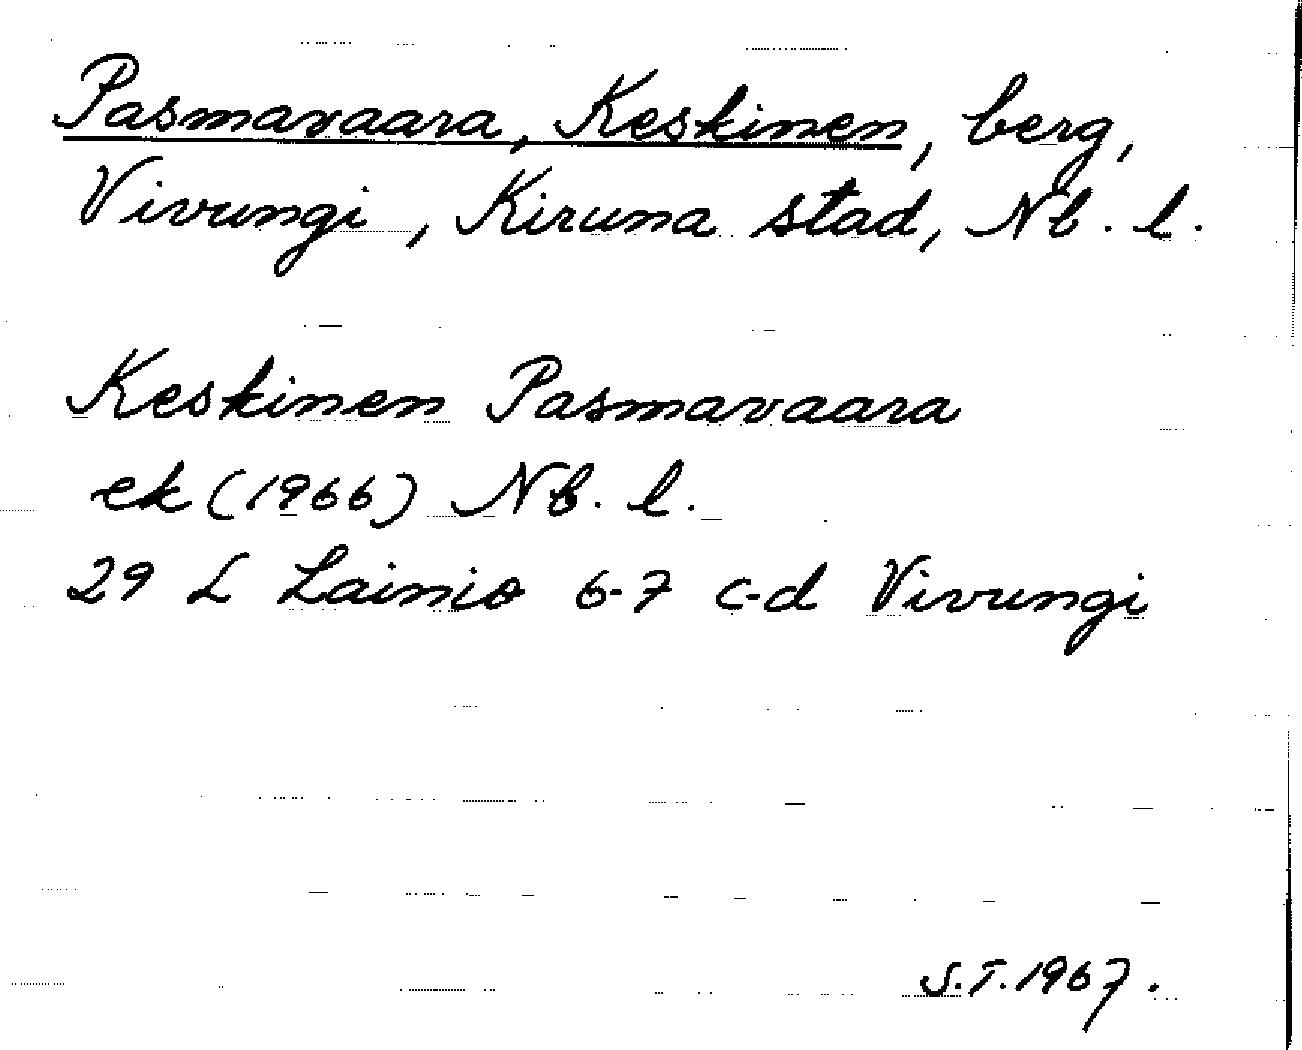 Pasmavaara, Keskinen, berg,
Vivungi, Kiruna stad, Nb. l.
Keskinen Pasmavaara
ek (1966) Nb. l.
29 L Lainio 6-7 c-d Vivungi
S.T. 1967.